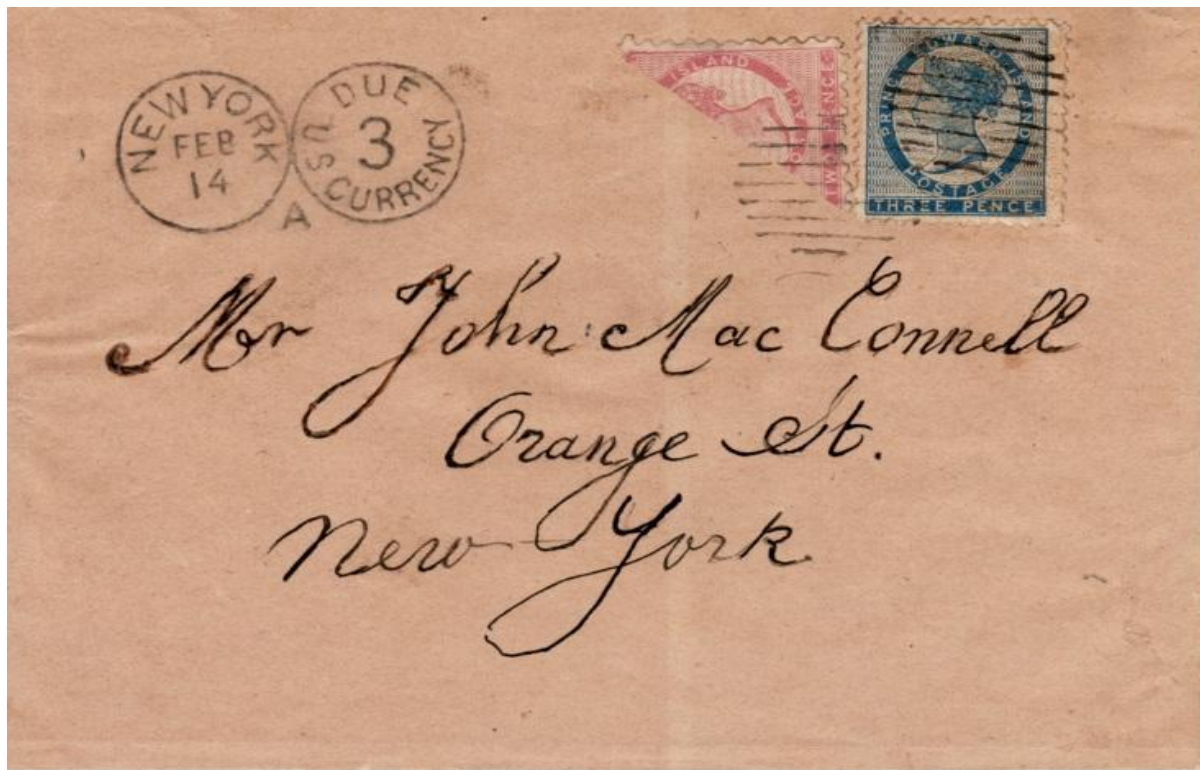 NEW YORK
FEB
14
DUE
3
U S CURRENCY
A
ISLAND POSTA
TWO PENCE
PRINCE EDWARD ISLAND
POSTAGE
THREE PENCE
Mr John Mac Connell
Orange St.
New York